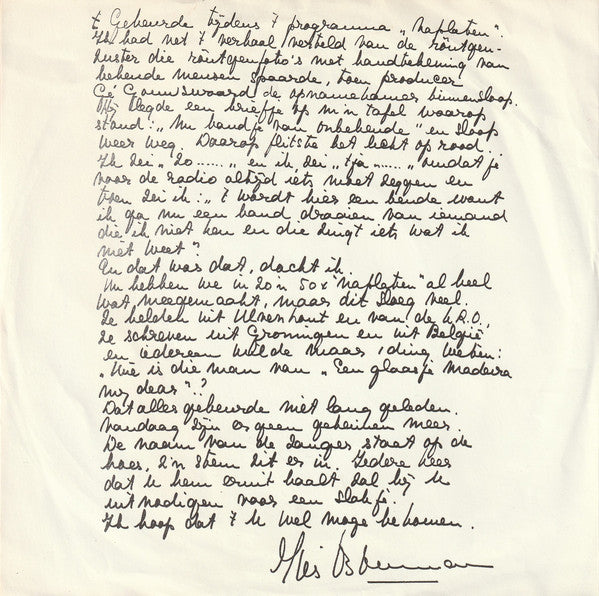 't Gebeurde tijdens 't programma „Naplaten".
Ik had net 't verhaal verteld van de röntgen-
zuster die röntgenfoto's met handtekening van
bekende mensen spaarde, toen producer
Gé Gouwswaard de opnamekamer binnensloop.
Hij legde een briefje op m'n tafel waarop
stond: „Nu bandje van onbekende" en sloop
weer weg. Daarop flitste het licht op rood.
Ik zei „Zo......." en ik zei „tja......." omdat je
voor de radio altijd iets moet zeggen en
toen zei ik: „'t wordt hier een bende want
ik ga nu een band draaien van iemand
die ik niet ken en die zingt iets wat ik
niet weet".
En dat was dat, dacht ik.
Nu hebben we in zo'n 50 x „Naplaten" al heel
wat meegemaakt, maar dit sloeg veel.
Ze belden uit Ulvenhout en van de K.R.O.,
ze schreven uit Groningen en uit België
en iedereen wilde maar 1 ding weten:
„Wie is die man van „Een glaasje madeira
my dear"?
Dat alles gebeurde niet lang geleden.
Vandaag zijn er geen geheimen meer.
De naam van de zanger staat op de
hoes, z'n stem zit er in. Iedere keer
dat u hem eruit haalt zal hij u
uitnodigen voor een slokje.
Ik hoop dat 't u wel moge bekomen.
Mies Bouwman